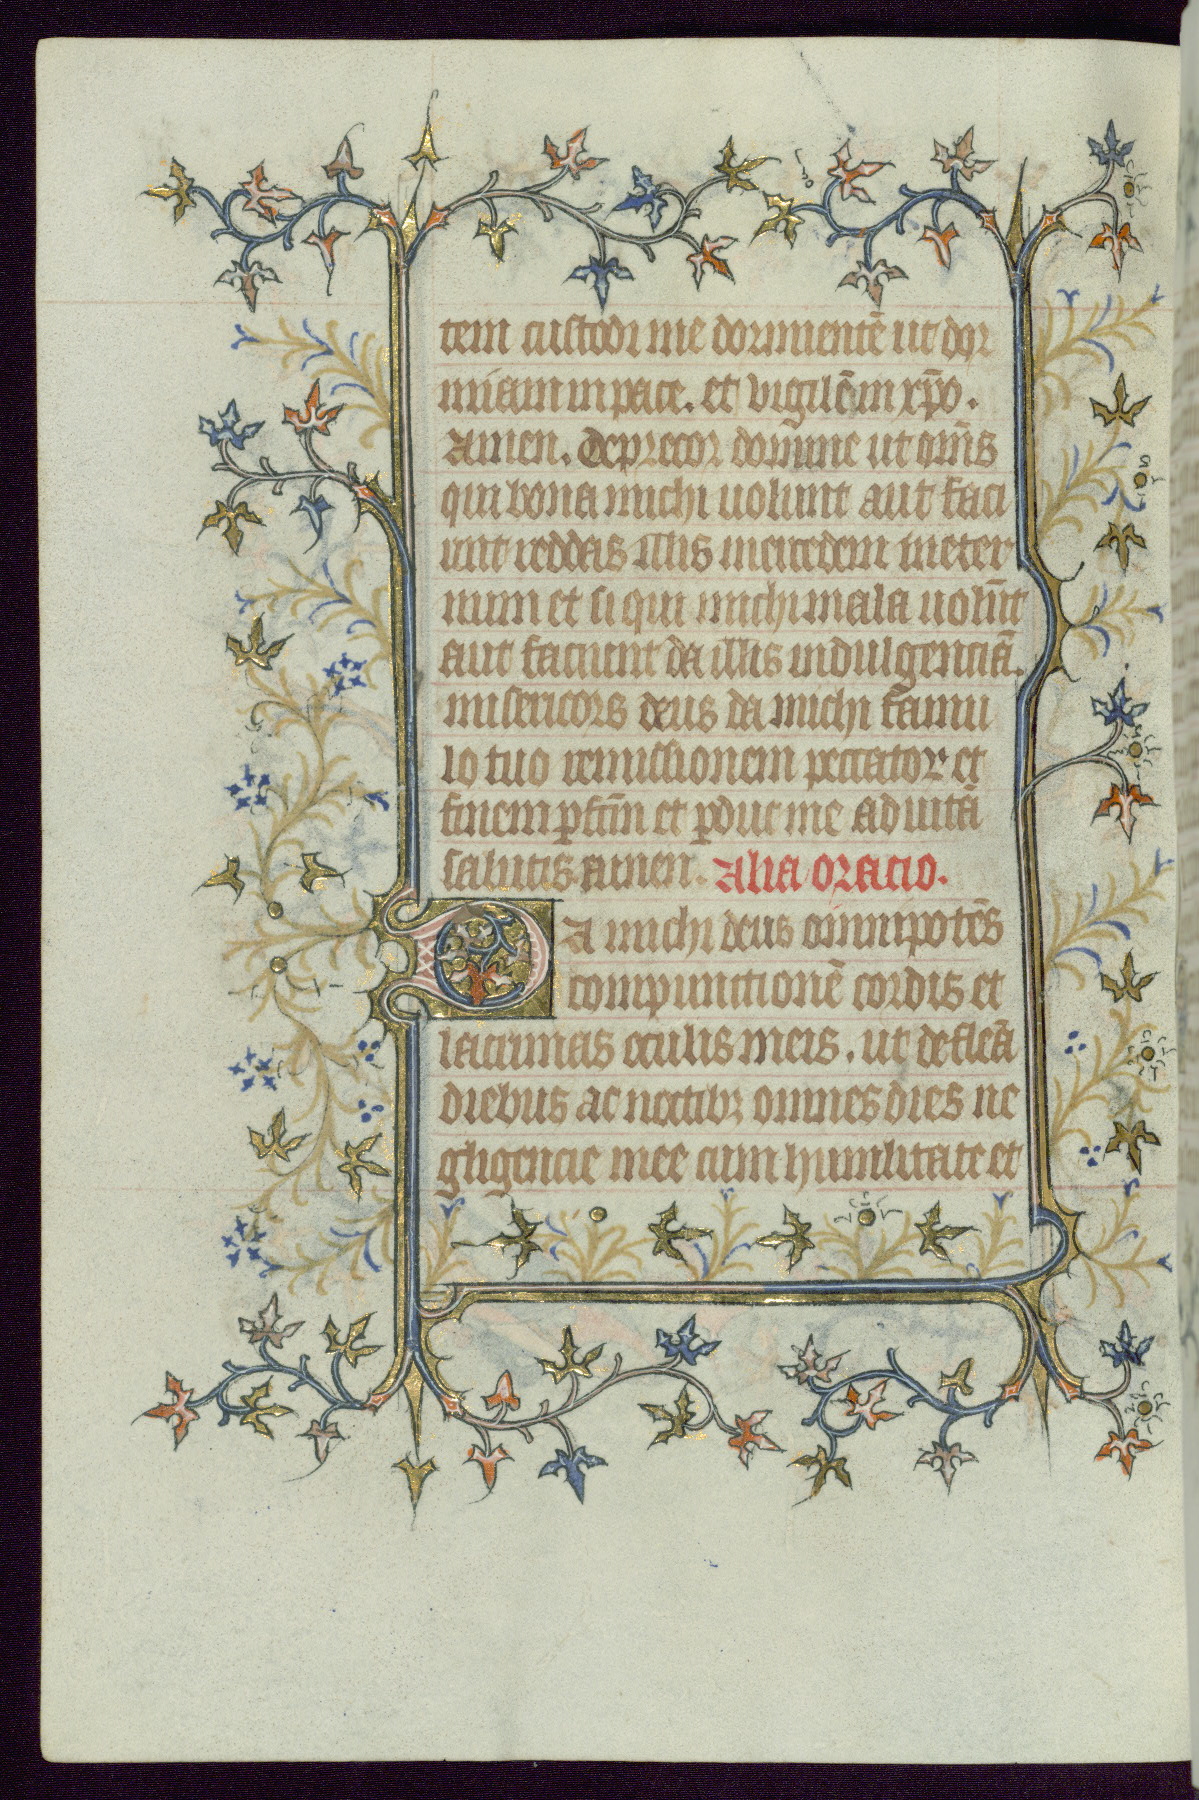 tem custodi me dormientē ut dor
miam in pace. et vigilē in xp̄o.
Amen. Deprecor domine ut om̄s
qui bona michi uolunt aut faci
unt reddas illis mercedem in eter
num et si qui michi mala uolūt
aut faciunt da illis indulgenciā.
misericors deus da michi famu
lo tuo remissionem peccator et
finem et ꝑduc me ad uitā
salutis amen. Alia oracio.
DA michi deus omnipotēs
compunctionē cordis et
lacrimas oculis meis. ut defleā
diebus ac noctibꝫ omnes dies ne
gligencie mee cum humilitate et